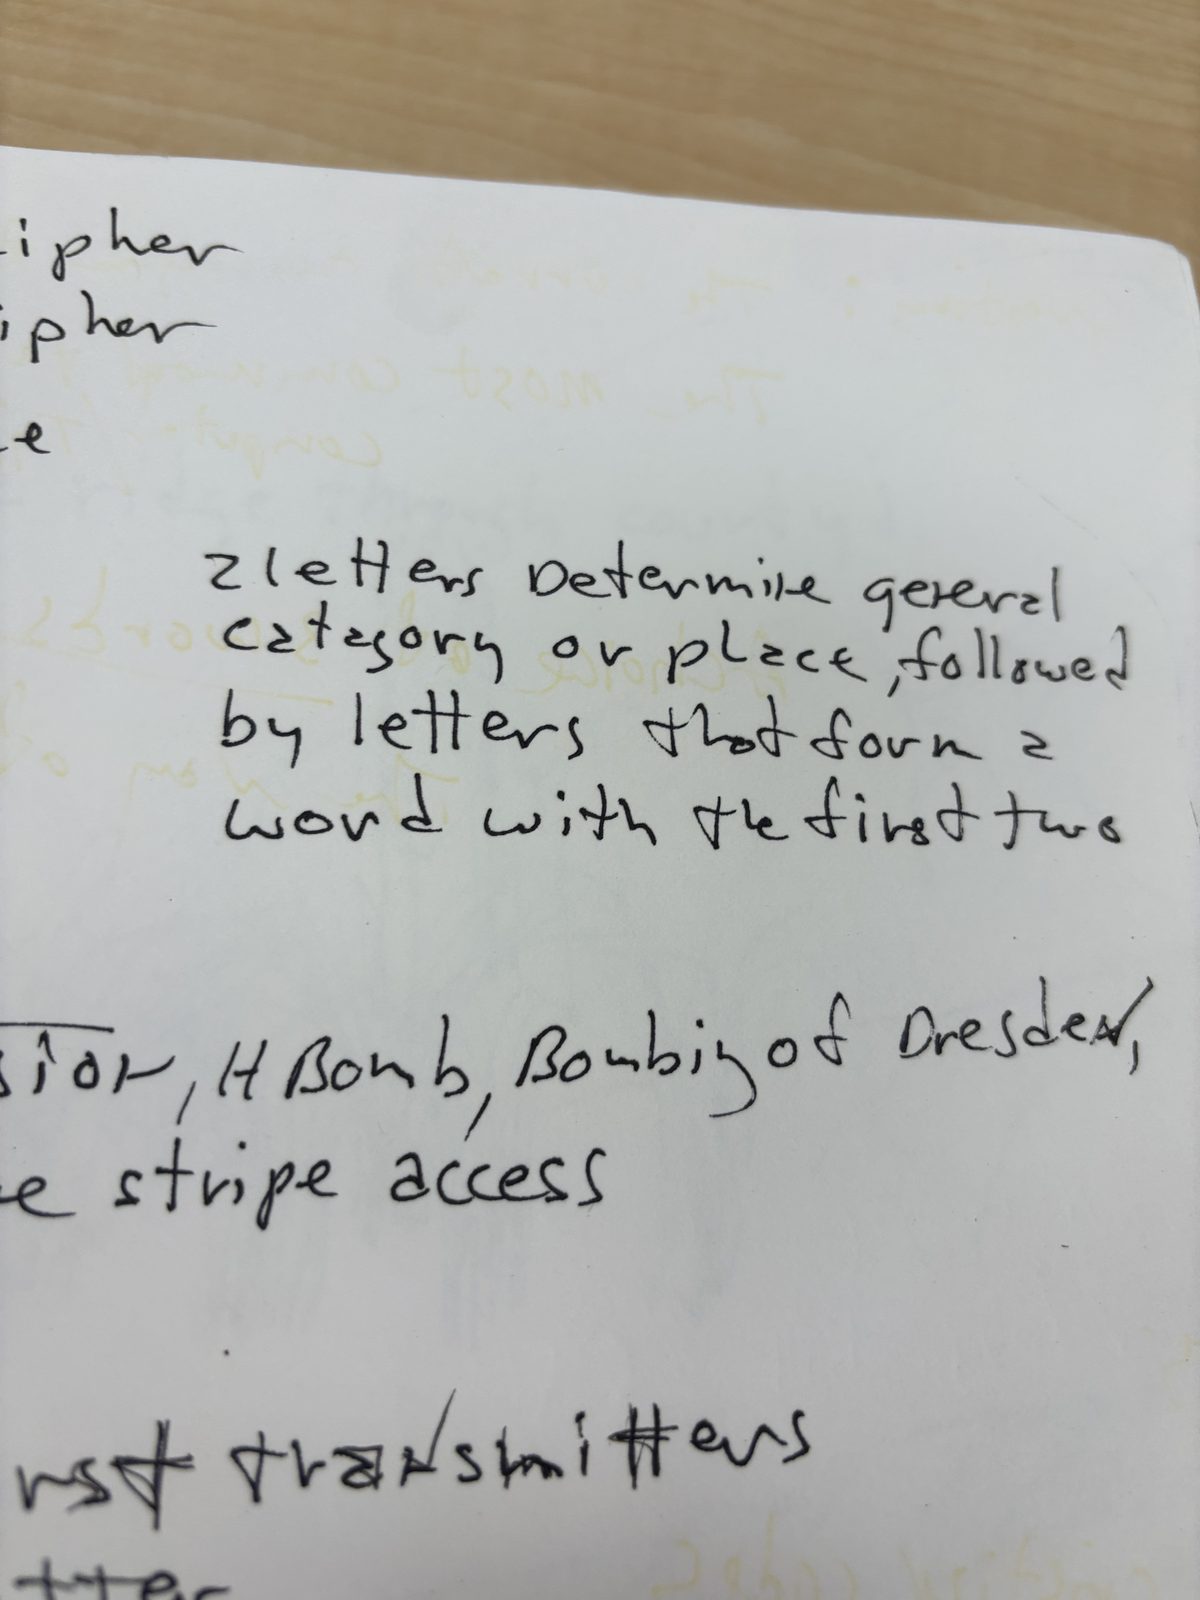 ipher
ipher
e
2 letters Determine general
category or place, followed
by letters that form a
word with the first two
sion, H Bomb, Bombing of Dresden,
e stripe access
rst transmitters
tter